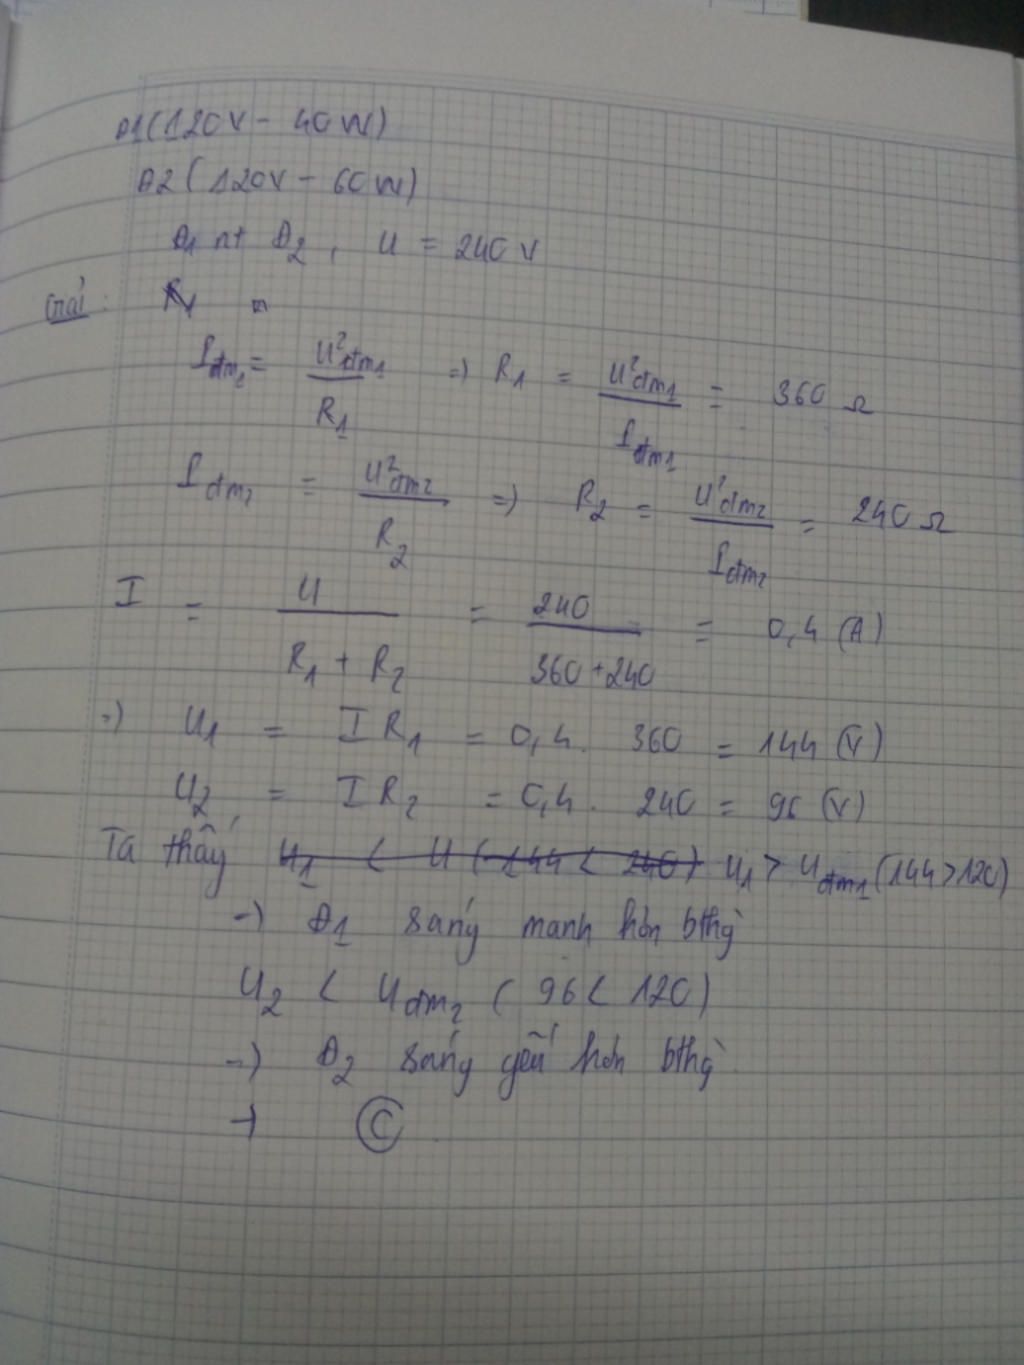 Đ1 (120V - 40W)
Đ2 (120V - 60W)
Đ1 nt Đ2, U = 240V
Giải: R1 =
Iđm1 = U²đm1 / R1 => R1 = U²đm1 / Iđm1 = 360 Ω
Iđm2 = U²đm2 / R2 => R2 = U²đm2 / Iđm2 = 240 Ω
I = U / R1 + R2 = 240 / 360 + 240 = 0,4 (A)
=> U1 = I R1 = 0,4. 360 = 144 (V)
U2 = I R2 = 0,4. 240 = 96 (V)
Ta thấy U1 < U (144 < 240) U1 > Uđm1 (144 > 120)
=> Đ1 sáng mạnh hơn bthg`
U2 < Uđm2 (96 < 120)
=> Đ2 sáng yếu hơn bthg`
→ C